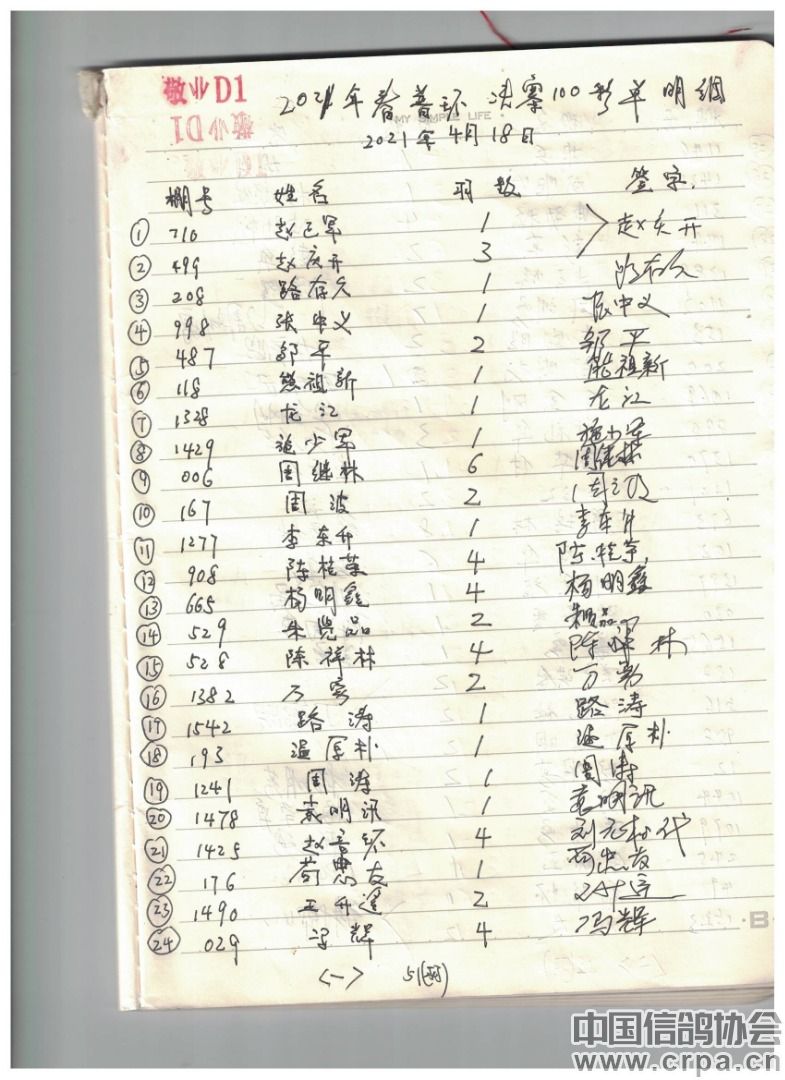 敬业D1
2021年春普环决赛100彩单明细
MY SIMPLE LIFE
2021年4月18日
棚号 姓名 羽数 签字
① 710 赵已军 1 赵庆开
② 499 赵庆开 3
③ 208 路存久 1 路存久
④ 998 张中义 1 张中义
⑤ 487 邹平 2 邹平
⑥ 118 熊祖新 1 熊祖新
⑦ 1328 龙江 1 龙江
⑧ 1429 施少军 1 施少军
⑨ 006 周继林 6 周继林
⑩ 167 周波 2 周波
⑪ 1277 李东升 1 李东升
⑫ 908 陈桂荣 4 陈桂荣
⑬ 665 杨明鑫 4 杨明鑫
⑭ 529 朱览品 2
⑮ 528 陈祥林 4 陈祥林
⑯ 1382 万 2 万
⑰ 1542 路涛 1 路涛
⑱ 193 温厚朴 1 温厚朴
⑲ 1241 周涛 1 周涛
⑳ 1478 袁明讯 1 袁明讯
㉑ 1425 赵 环 4 刘 代
㉒ 176 苟忠友 1
㉓ 1490 王升遥 2
㉔ 029 冯辉 4 冯辉
<一> 51(羽)
中国信鸽协会
www.crpa.cn